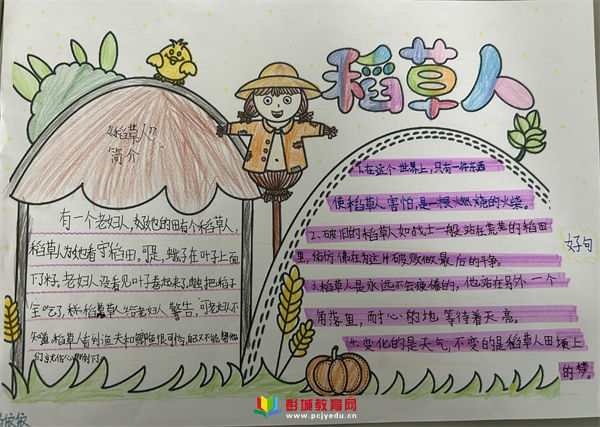 稻草人
《稻草人》
简介
有一个老妇人,她的田有个稻草人,
稻草人为他看守稻田,可是,蛾子在叶子上面
下了籽,老妇人没看见叶子卷起来了,蛾把稻子
全吃了,稻草人给老妇人警告,可老妇人不
知道,稻草人看到渔夫和鲫鱼很可怜,但又不能帮他
1.在这个世界上,只有一样东西
使稻草人害怕,是一根燃烧的火柴。
2、破旧的稻草人如战士一般站在荒芜的稻田
里,仿佛在为这片破败做最后的斗争。
3.稻草人是永远不会疲倦的,他站在另外一个
角落里,耐心的地等待着天亮。
4.变化的是天气,不变的是稻草人田埂上
的梦。
好句
彭城教育网
www.pcjyedu.cn